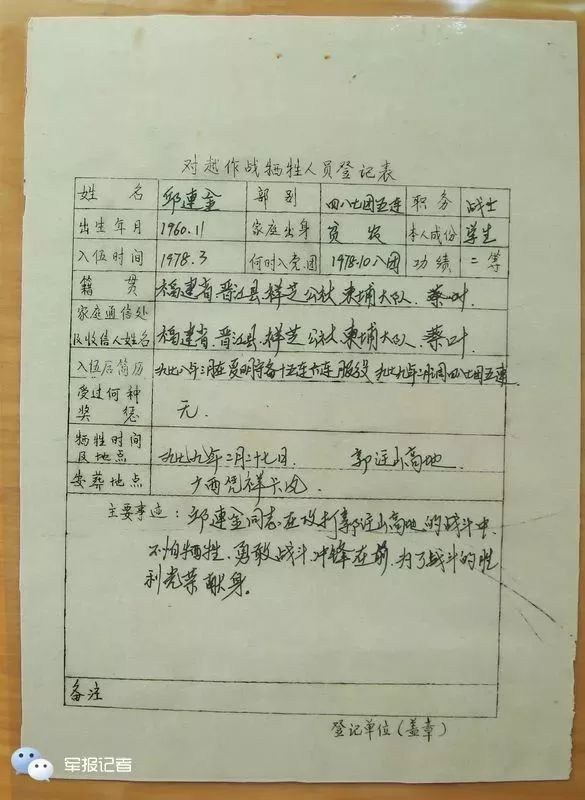 对越作战牺牲人员登记表
姓名 邱連金 部别 四八七团五連 职务 战士
出生年月 1960.11 家庭出身 贫农 本人成份 学生
入伍时间 1978.3 何时入党.团 1978.10入团 功绩 二等
籍贯 福建省.晋江县.祥芝公社 東埔大队. 蔡叶.
家庭通信处
及收信人姓名 福建省.晋江县.祥芝公社 東埔大队. 蔡叶
入伍后简历 九七八年三月在厦門守备十五连六连服役 九七九年二月调四八七团五連
受过何种
奖惩 无.
牺牲时间
及地点 九七九年二月二十七日. 郭逆山高地
安葬地点 广西凭祥卡凤
主要事迹：邱連金同志在攻打郭逆山高地的战斗中.
不怕牺牲.勇敢战斗.冲锋在前.为了战斗的胜
利光荣献身.
备注
登记单位(盖章)
军报记者